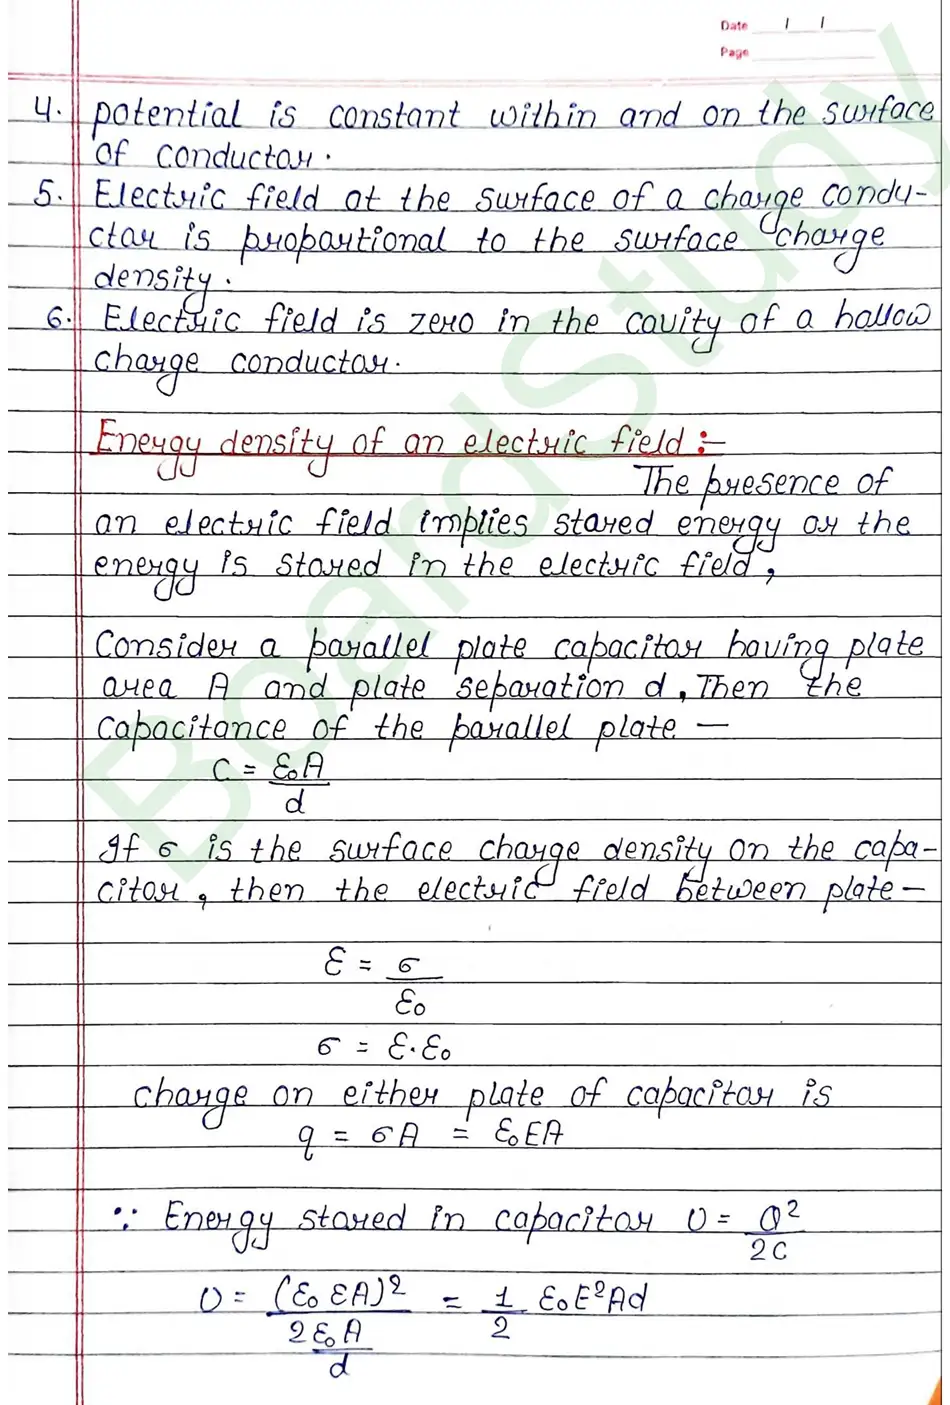 Date / /
Page
4. potential is constant within and on the surface
of conductor.
5. Electric field at the surface of a charge condu-
ctor is proportional to the surface charge
density.
6. Electric field is zero in the cavity of a hollow
charge conductor.
Energy density of an electric field :-
The presence of
an electric field implies stored energy or the
energy is stored in the electric field,
Consider a parallel plate capacitor having plate
area A and plate separation d, Then the
capacitance of the parallel plate —
C = ε₀A/d
If σ is the surface charge density on the capa-
citor, then the electric field between plate —
E = σ/ε₀
σ = E·ε₀
charge on either plate of capacitor is
q = σA = ε₀EA
∵ Energy stored in capacitor U = Q²/2C
U = (ε₀EA)²/(2ε₀A/d) = 1/2 ε₀E²Ad
BoardStudy